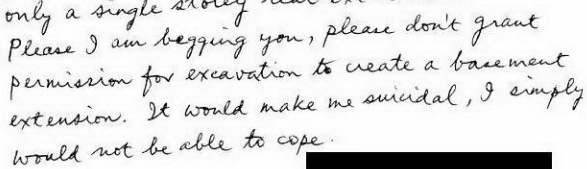 only a single storey rear
Please I am begging you, please don't grant
permission for excavation to create a basement
extension. It would make me suicidal, I simply
would not be able to cope.